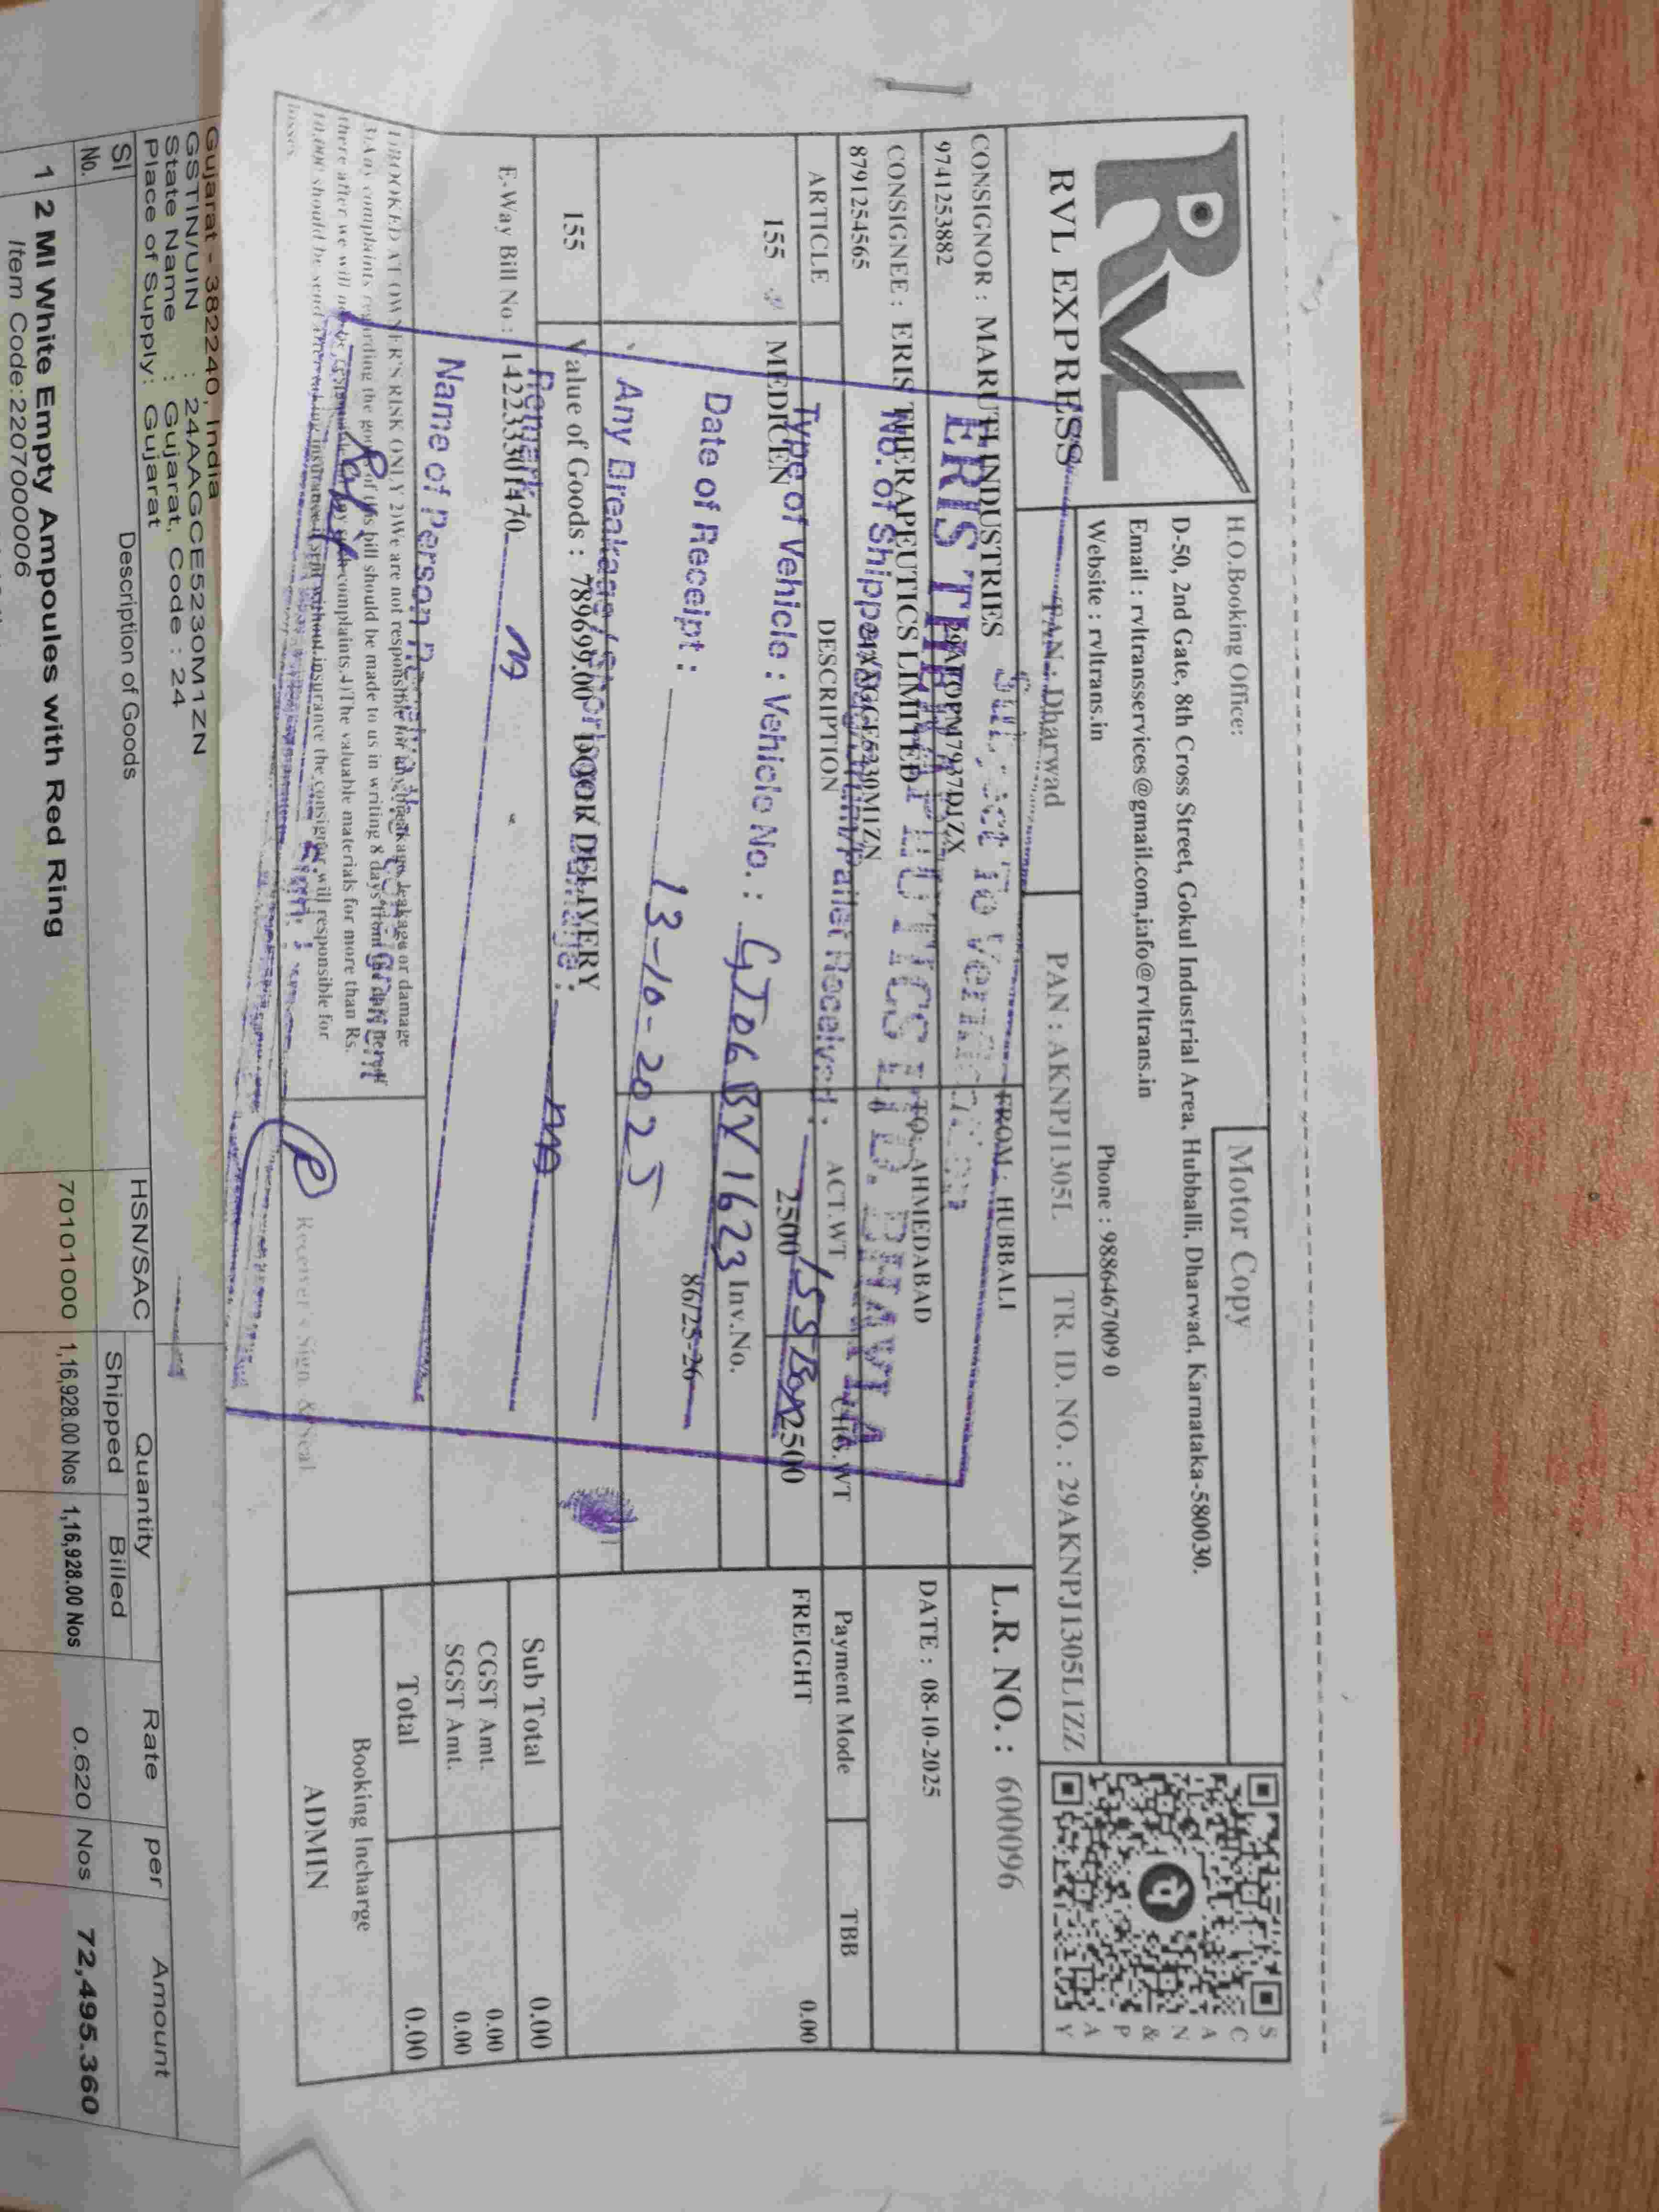 RVL EXPRESS
H.O.Booking Office:
Motor Copy
D-50, 2nd Gate, 8th Cross Street, Gokul Industrial Area, Hubballi, Dharwad, Karnataka-580030.
Email : rvltransservices@gmail.com,info@rvltrans.in
Website : rvltrans.in
Phone : 9886467009 0
SCAN & PAY
TAN : Dharwad
PAN : AKNPJ1305L
TR. ID. NO. : 29AKNPJ1305L1ZZ
CONSIGNOR : MARUTI INDUSTRIES
FROM : HUBBALI
L.R. NO. : 600096
9741253882
Subject To Verification
CONSIGNEE : ERIS THERAPEUTICS LIMITED
TO : AHMEDABAD
DATE : 08-10-2025
8791254565
24AAGCE5230M1ZN
ERIS THERAPEUTICS LTD. BHAYLA
ARTICLE
DESCRIPTION
ACT.WT
CHG.WT
Payment Mode
TBB
155
MEDICIEN
2500
2500
FREIGHT
0.00
155 Box
Type of Vehicle : Vehicle No. : GJ06BV1623
Inv.No.
Date of Receipt : 13-10-2025
86/25-26
155
Value of Goods : 78699.00
DOOR DELIVERY
Any Breakage/
Sub Total
0.00
CGST Amt.
0.00
SGST Amt.
0.00
E-Way Bill No : 142233301470
Remark
Name of Person
Total
0.00
1)BOOKED AT OWNER'S RISK ONLY 2)We are not responsible for any breakage, leakage or damage
3)Any complaints regarding the goods of this bill should be made to us in writing 8 days from the date hereof
there after we will not be responsible for any such complaints.4)The valuable materials for more than Rs.
10,000 should be sent after taking insurance if sent without insurance the consignor will responsible for
losses
Receiver's Sign & Seal
Booking Incharge
ADMIN
Gujarat - 382240, India
GSTIN/UIN : 24AAGCE5230M1ZN
State Name : Gujarat, Code : 24
Place of Supply : Gujarat
Sl No.
Description of Goods
HSN/SAC
Quantity
Shipped
Billed
Rate
per
Amount
1
2 Ml White Empty Ampoules with Red Ring
70101000
1,16,928.00 Nos
1,16,928.00 Nos
0.620
Nos
72,495.360
Item Code:2207000006